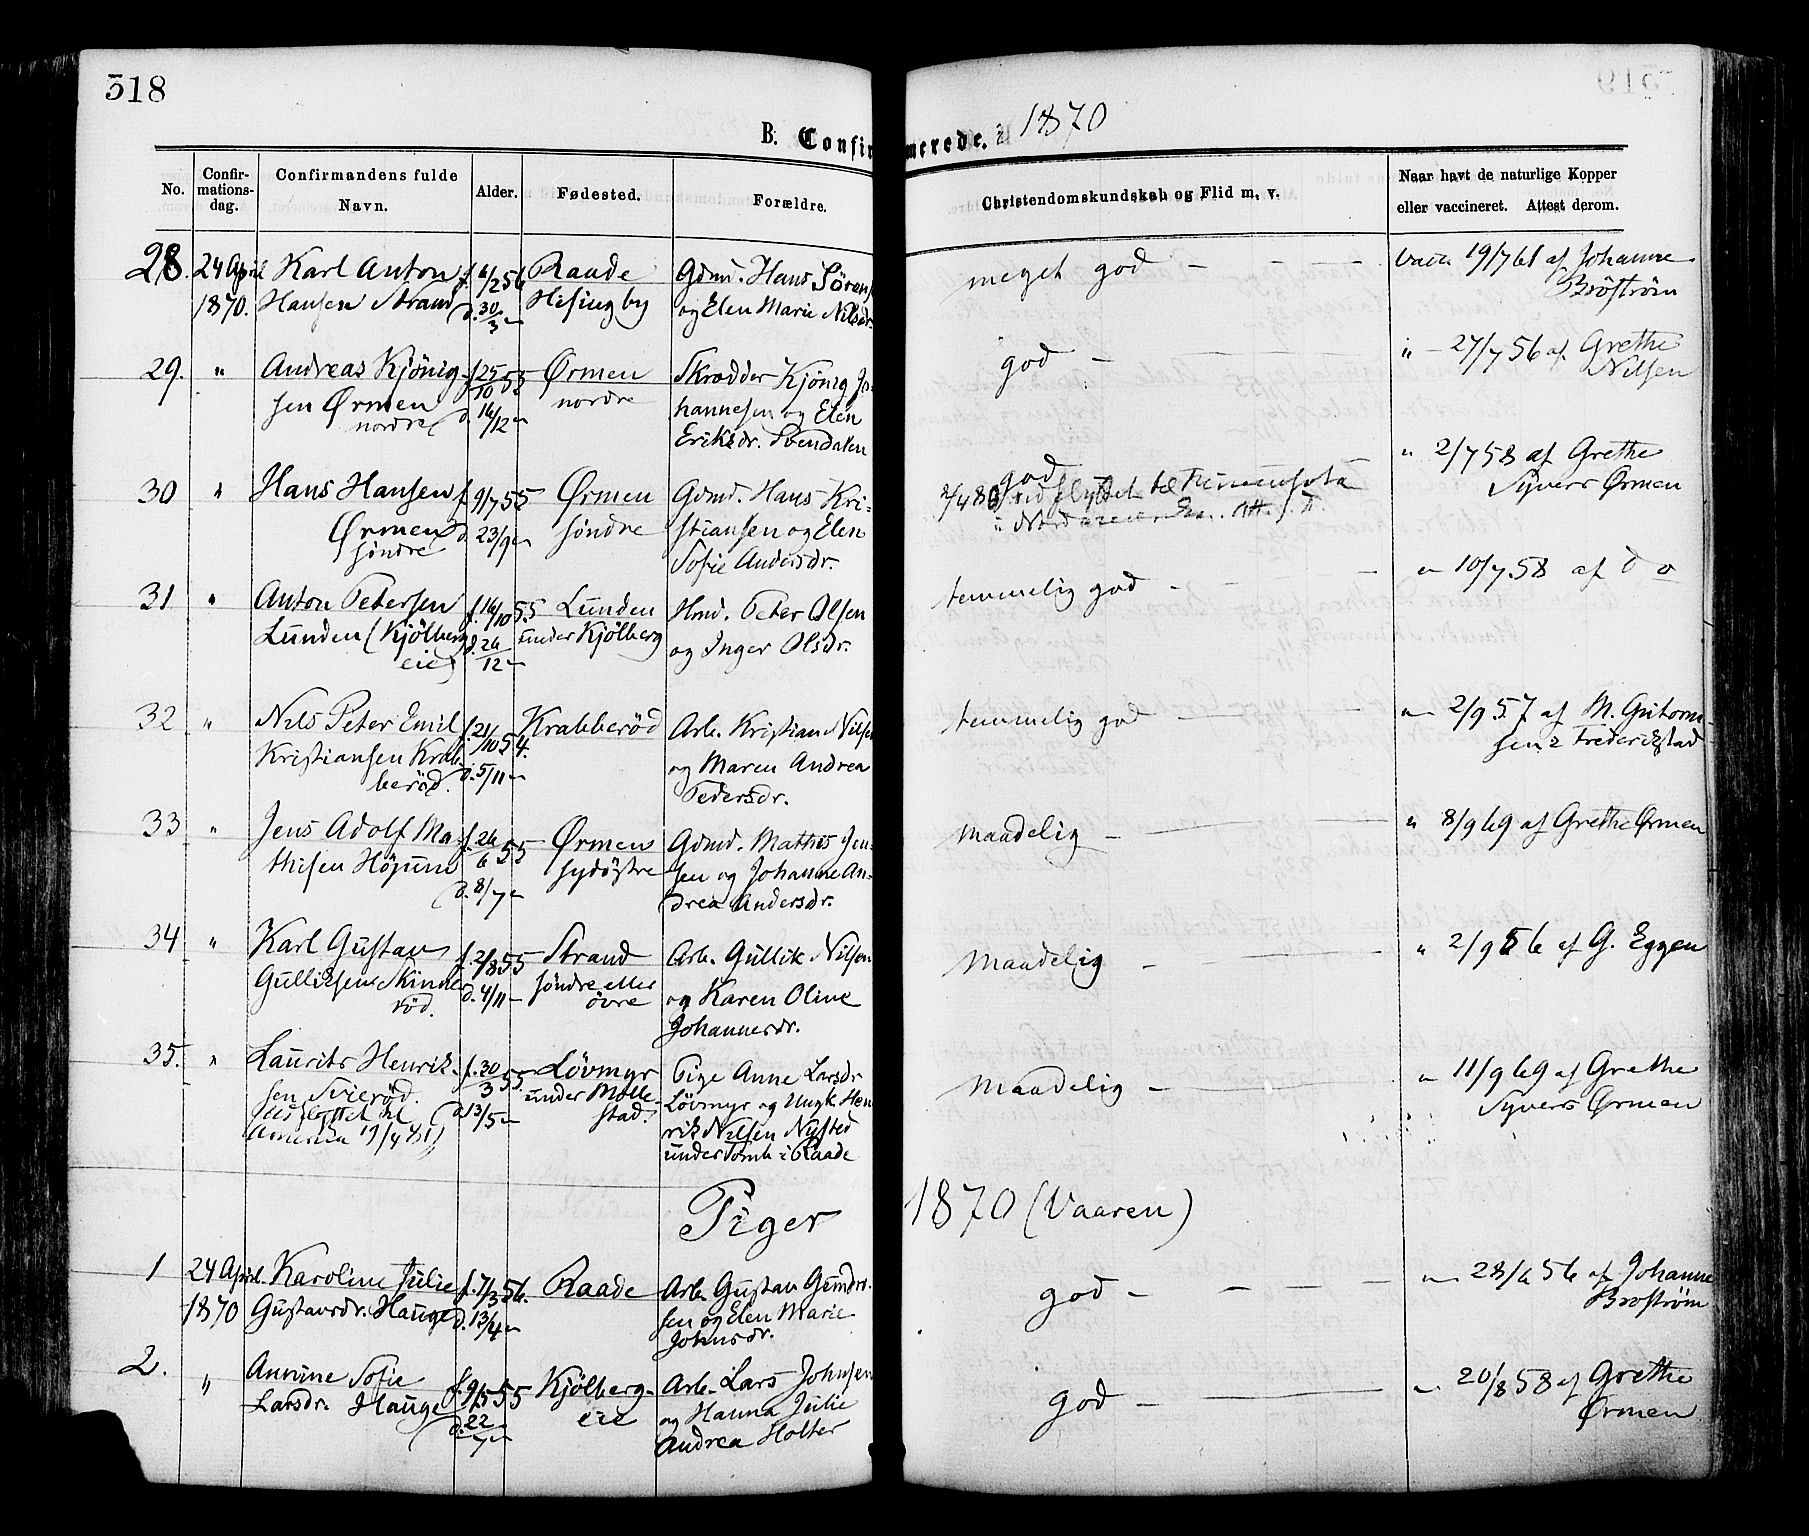 318
B. Confirmerede. i 1870
No. Confirmationsdag. Confirmandens fulde Navn. Alder. Fødested. Forældre. Christendomskundskab og Flid m. v. Naar havt de naturlige Kopper eller vaccineret. Attest derom.
28. 24 April Karl Anton f. 6/2 56 Raade Gdmd. Hans Sören meget god — — — vacc. 19/7 61 af Johanne
1870. Hansen Strand d. 30/3 — Hesingby og Elen Marie Nilsdr. Broström
29. " Andreas Kjönig- f. 25/10 55 Ørmen Skrædder Kjönig Jo- god — — — " — 27/7 56 af Grethe
sen Ørmen d. 16/12 — nordre hannesen og Elen Nilsen
nordre Eriksdr. Svendalen
30 " Hans Hansen f. 9/7 55 Ørmen Gdmd. Hans Kri- god " 2/7 58 af Grethe
Ørmen d. 23/9 — söndre stiansen og Elen 2/4 80 flyttet til Syvers Ørmen
söndre Sofie Andersdr.
31 " Anton Petersen f. 16/10 55 Lunden Hmd. Peter Olsen temmelig god — — — " 10/7 58 af do
Lunden (Kjölberg d. 26/12 — under Kjölberg og Inger Olsdr.
eie)
32 " Nils Peter Emil f. 21/10 54. Krabberöd Arb. Kristian Nilsen temmelig god — — — " 2/9 57 af M. Gutorm-
Kristiansen Krab- d. 5/11 — og Maren Andrea sen i Frederikstad
beröd. Pedersdr.
33 " Jens Adolf Ma- f. 26/6 55 Ørmen Gdmd. Mathis Jen- maadelig — — " 8/9 69 af Grethe Ørmen
thisen Höjum d. 8/7 — sydöstre sen og Johanne An-
drea Andersdr.
34 " Karl Gustav f. 2/8 55 Strand Arb. Gullik Nilsen maadelig — — — " 2/9 56 af G. Eggen
Gulliksen Skinne- d. 4/11 — söndre eller og Karen Oline
röd. övre Johannesdr.
35. " Laurits Henrik- f. 30/3 55 Lövmyr Pige Anne Larsdr. maadelig — — " 11/9 69 af Grethe
sen Tvieröd. d. 13/5 — under Molle- Lövmyr og Ungk. Hen- Syvers Ørmen
flyttet til stad. rik Nilsen Nysted
America 19/4 81) under Tomb i Raade
Piger 1870 (Vaaren)
1 24 April Karoline Julie f. 7/3 56. Raade Arb. Gustav Gunder- god — — — " 28/6 56 af Johanne
1870 Gustavsdr. Hauge d. 13/4 — sen og Elen Marie Broström
Johnsdr.
2. " Annine Sofie f. 9/5 55 Kjölberg- Arb. Lars Johnsen god — — " 20/8 58 af Grethe
Larsdr. Hauge d. 22/7 — eie og Hanna Julie Ørmen
Andrea Holter